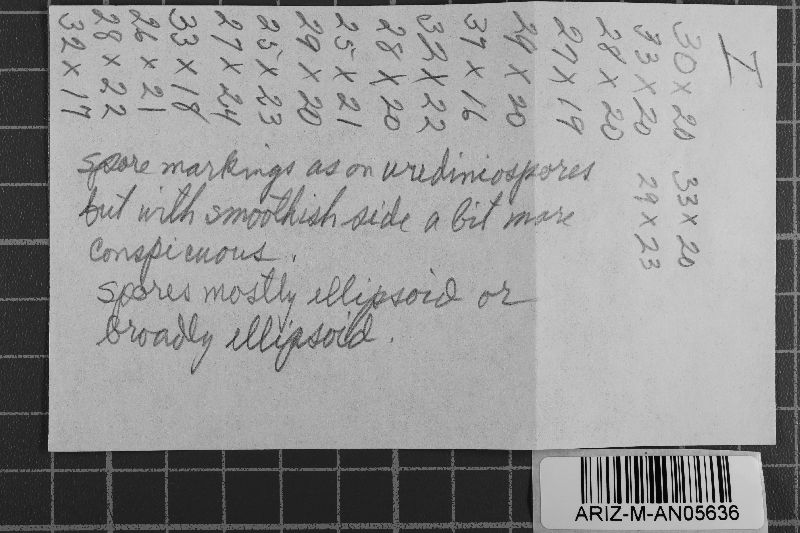 I
30 x 20
33 x 20
33 x 20
29 x 23
28 x 20
27 x 19
29 x 20
37 x 16
32 x 22
28 x 20
25 x 21
29 x 20
25 x 23
27 x 24
33 x 18
26 x 21
28 x 22
32 x 17
spore markings as on urediniospores
but with smoothish side a bit more
conspicuous.
spores mostly ellipsoid or
broadly ellipsoid.
ARIZ-M-AN05636